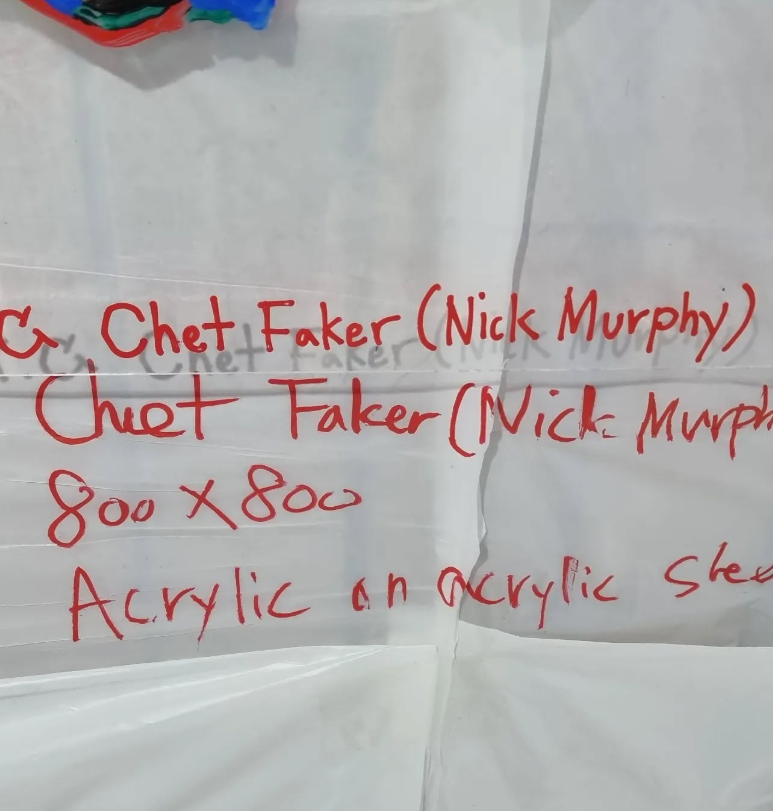 G Chet Faker (Nick Murphy)
Chet Faker (Nick Murph
800 x 800
Acrylic on acrylic